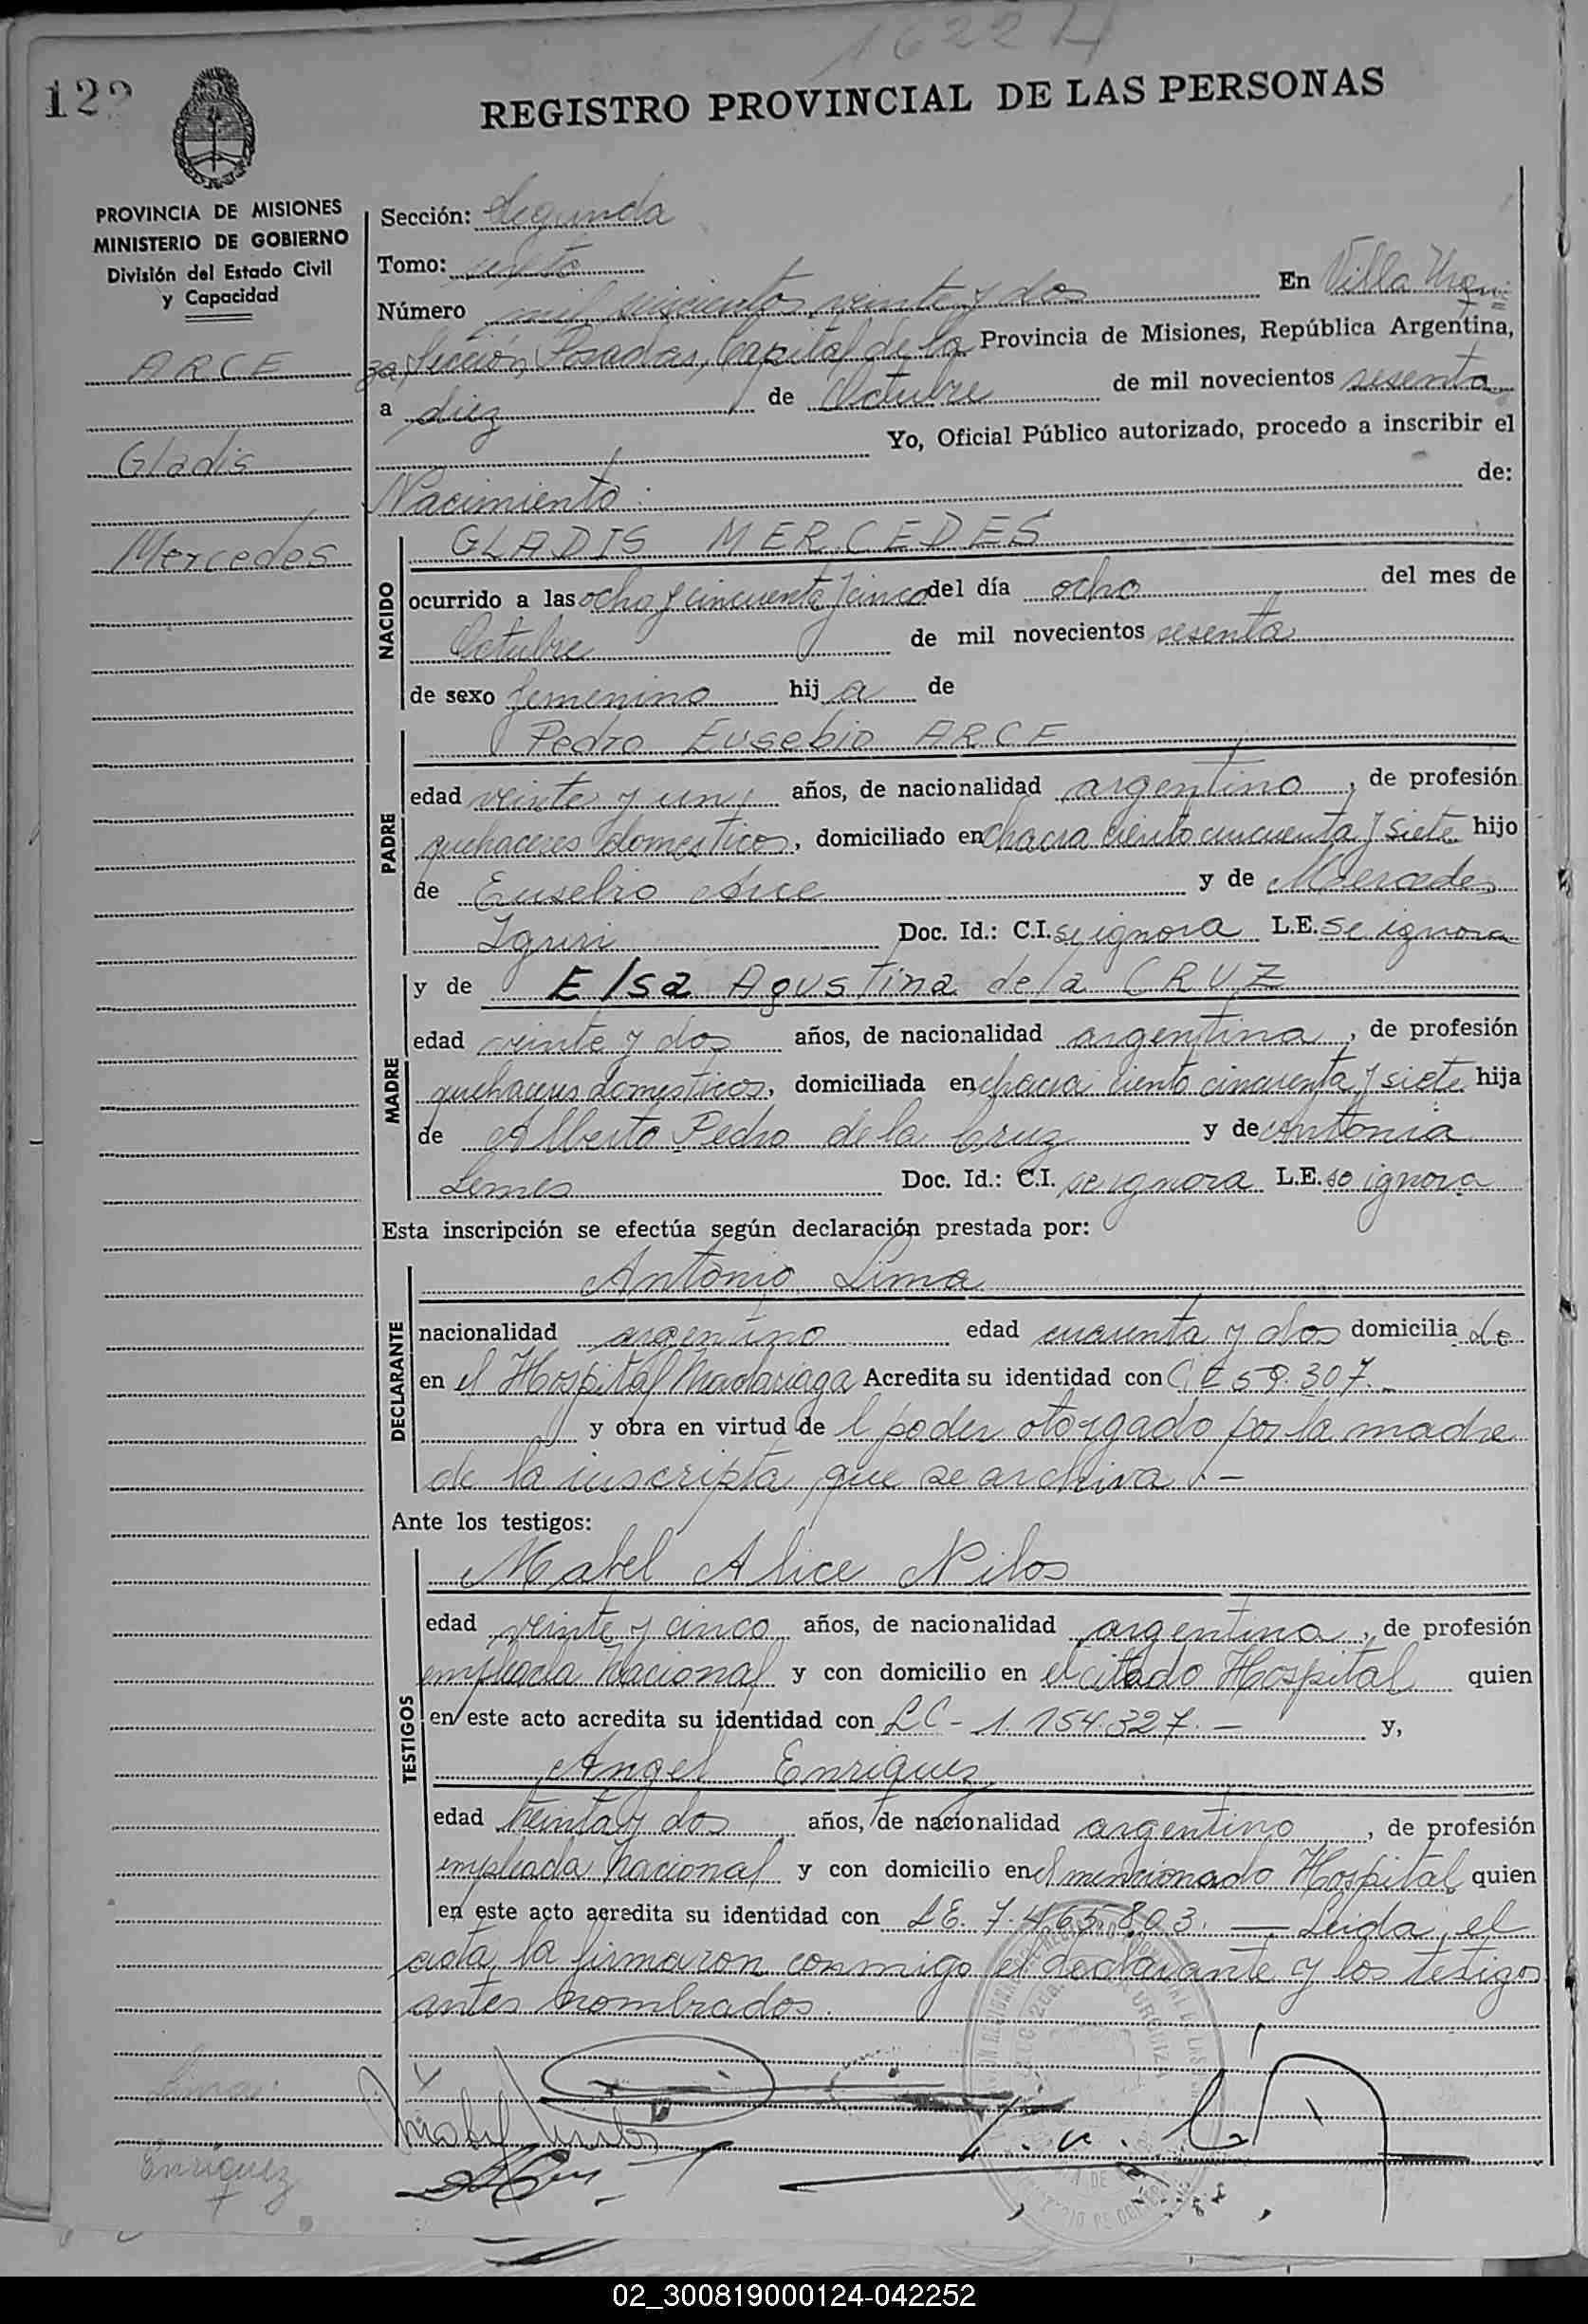 1622 H
122
REGISTRO PROVINCIAL DE LAS PERSONAS
PROVINCIA DE MISIONES
MINISTERIO DE GOBIERNO
División del Estado Civil
y Capacidad
ARCE
Gladis
Mercedes
Sección: Segunda
Tomo: sexto
Número mil seiscientos veinte y dos En Villa Urqui
za Sección, Posadas, Capital de la Provincia de Misiones, República Argentina,
a diez de Octubre de mil novecientos sesenta
Yo, Oficial Público autorizado, procedo a inscribir el
Nacimiento de:
NACIDO
GLADIS MERCEDES
ocurrido a las ocho y cincuenta y cinco del día ocho del mes de
Octubre de mil novecientos sesenta
de sexo femenino hij a de
PADRE
Pedro Eusebio ARCE
edad veinte y un años, de nacionalidad argentino, de profesión
quehaceres domesticos, domiciliado en chacra ciento cincuenta y siete hijo
de Eusebio Arce y de Mercedes
Doc. Id.: C.I. se ignora L.E. se ignora
MADRE
y de Elsa Agustina de la CRUZ
edad veinte y dos años, de nacionalidad argentina, de profesión
quehaceres domesticos, domiciliada en chacra ciento cincuenta y siete hija
de Alberto Pedro de la Cruz y de Antonia
Lemes Doc. Id.: C.I. se ignora L.E. se ignora
Esta inscripción se efectúa según declaración prestada por:
DECLARANTE
Antonio Lima
nacionalidad argentino edad cuarenta y dos domicilia do
en el Hospital Madariaga Acredita su identidad con C.I. 59.307.-
y obra en virtud de l poder otorgado por la madre
de la inscripta, que se archiva.-
Ante los testigos:
TESTIGOS
Mabel Alice Nilos
edad veinte y cinco años, de nacionalidad argentina, de profesión
empleada Nacional y con domicilio en el citado Hospital quien
en este acto acredita su identidad con LC - 1.154.327.- y,
Angel Enriquez
edad treinta y dos años, de nacionalidad argentino, de profesión
empleada Nacional y con domicilio en el mencionado Hospital quien
en este acto acredita su identidad con LE. 7.465.803. — Leida el
acta, la firmaron conmigo el declarante y los testigos
antes nombrados.
Lima
Enriquez
02_300819000124-042252